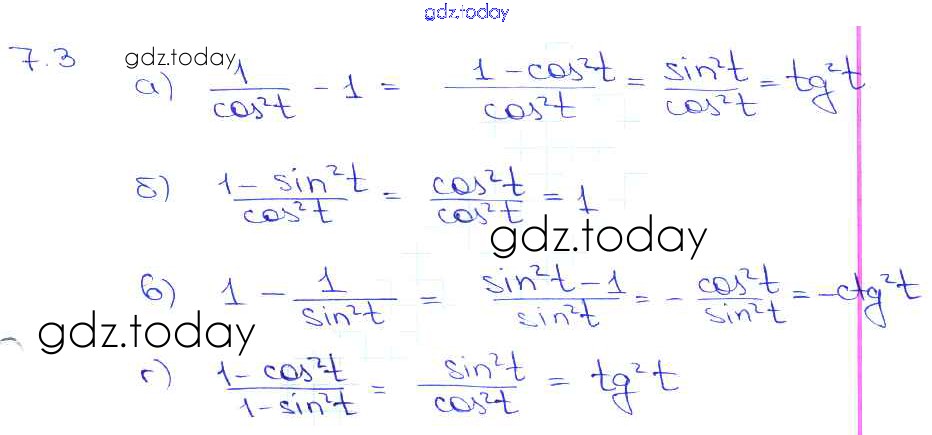 gdz.today
7.3 gdz.today
а) 1/cos²t - 1 = (1-cos²t)/cos²t = sin²t/cos²t = tg²t
б) (1-sin²t)/cos²t = cos²t/cos²t = 1
gdz.today
в) 1 - 1/sin²t = (sin²t-1)/sin²t = -cos²t/sin²t = -ctg²t
gdz.today
г) (1-cos²t)/(1-sin²t) = sin²t/cos²t = tg²t